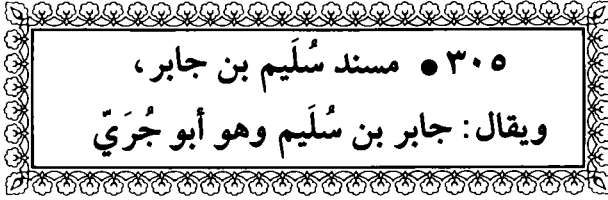 ٣٠٥ • مسند سُلَيم بن جابر،
ويقال: جابر بن سُلَيم وهو أبو جُرَيّ